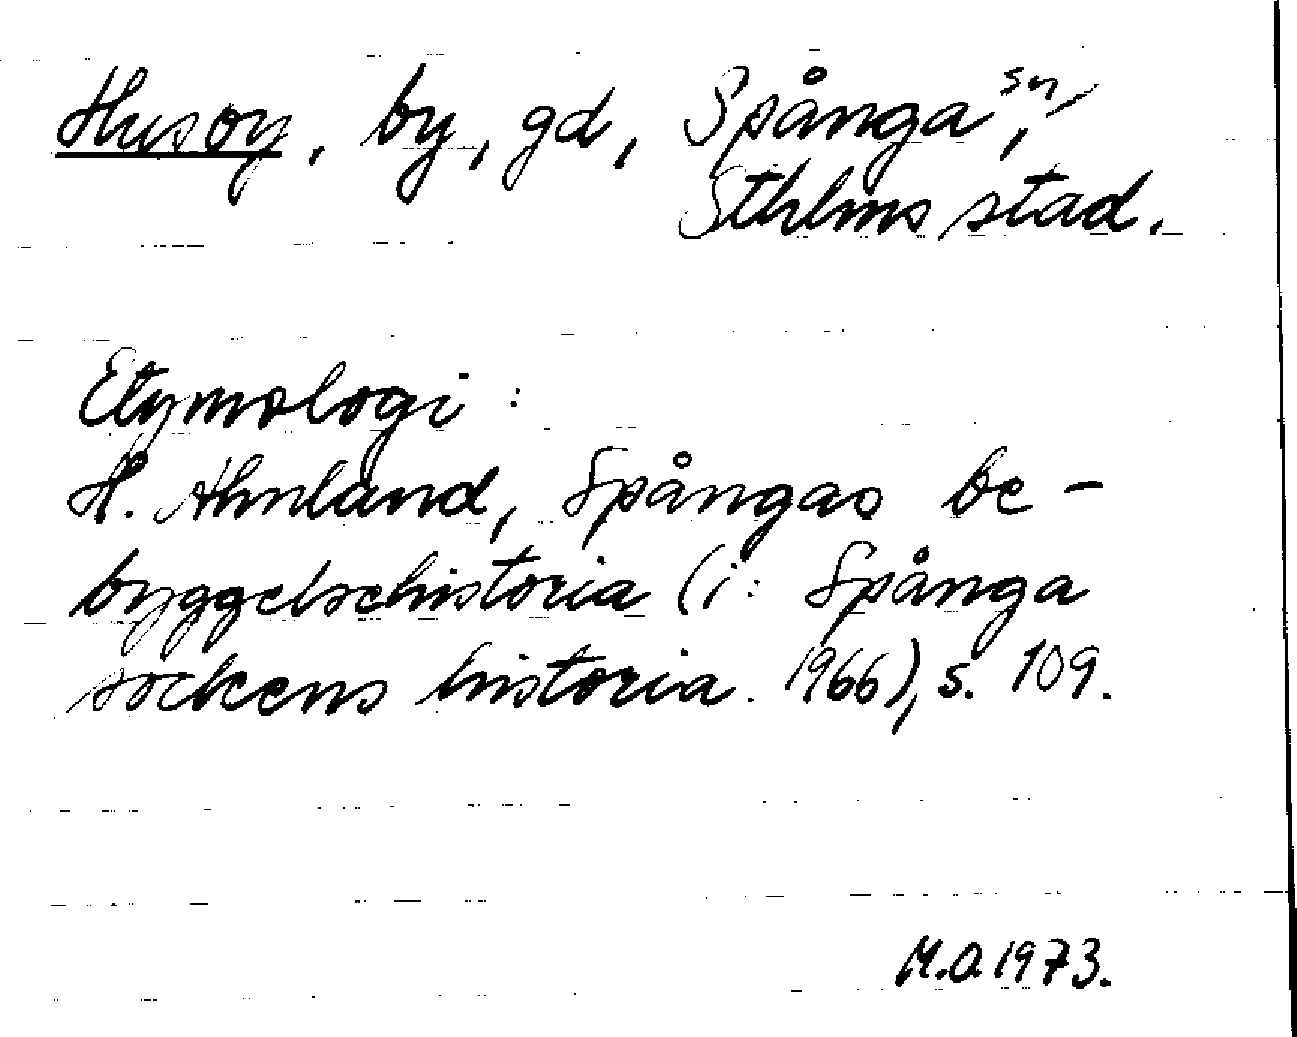 Husby, by, gd, Spånga sn,
Sthlms stad.
Etymologi:
H. Ahnlund, Spångas be-
byggelsehistoria (i: Spånga
sockens historia. 1966), s. 109.
M.O. 1973.